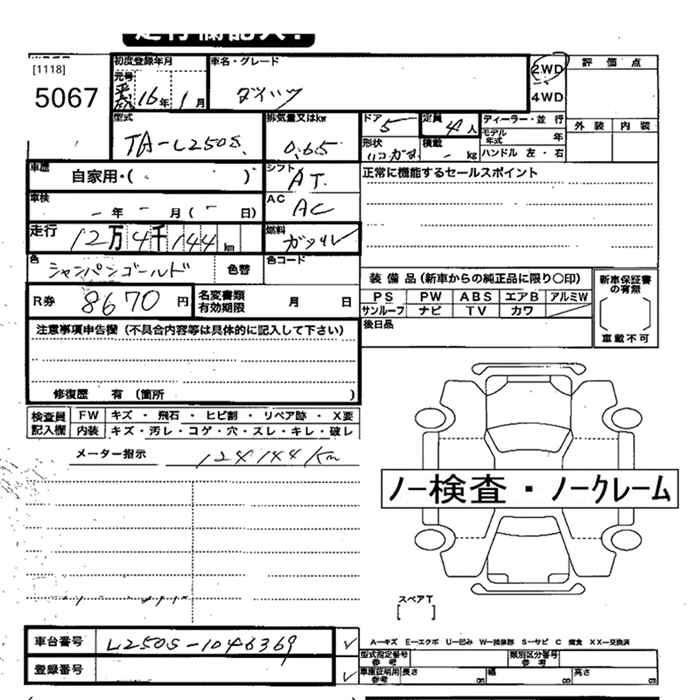 走行欄記入！
[1118]
5067
初度登録年月
元号
平成 16年 1月
車名・グレード
ダイハツ
2WD
4WD
評価点
外装 内装
型式
TA-L250S
排気量又はkw
0.65
ドア
5
定員
4人
形状
積載
- kg
ディーラー・並行
モデル年式 年
ハンドル 左・右
車歴
自家用・( )
シフト
AT
正常に機能するセールスポイント
車検
- 年 - 月 ( - 日)
AC
AC
走行
12万4千144km
燃料
ガソリン
色
シャンパンゴールド
色替
色コード
R券
8670円
名変書類有効期限
月 日
装備品 (新車からの純正品に限り〇印)
PS PW ABS エアB アルミW
サンルーフ ナビ TV カワ
後日品
新車保証書の有無
車載不可
注意事項申告欄 (不具合内容等は具体的に記入して下さい)
修復歴 有 (箇所 )
検査員記入欄
FW キズ ・ 飛石 ・ ヒビ割 ・ リペア跡 ・ X要
内装 キズ・汚レ・コゲ・穴・スレ・キレ・破レ
メーター指示
124144Km
ノー検査・ノークレーム
スペアT
[ ]
車台番号
L250S-1046369
登録番号
A－キズ E－エクボ U－凹み W－補修跡 S－サビ C 腐食 XX－交換済
型式指定番号
参考
類別区分番号
参考
車庫証明用
参考
長さ
幅
高さ